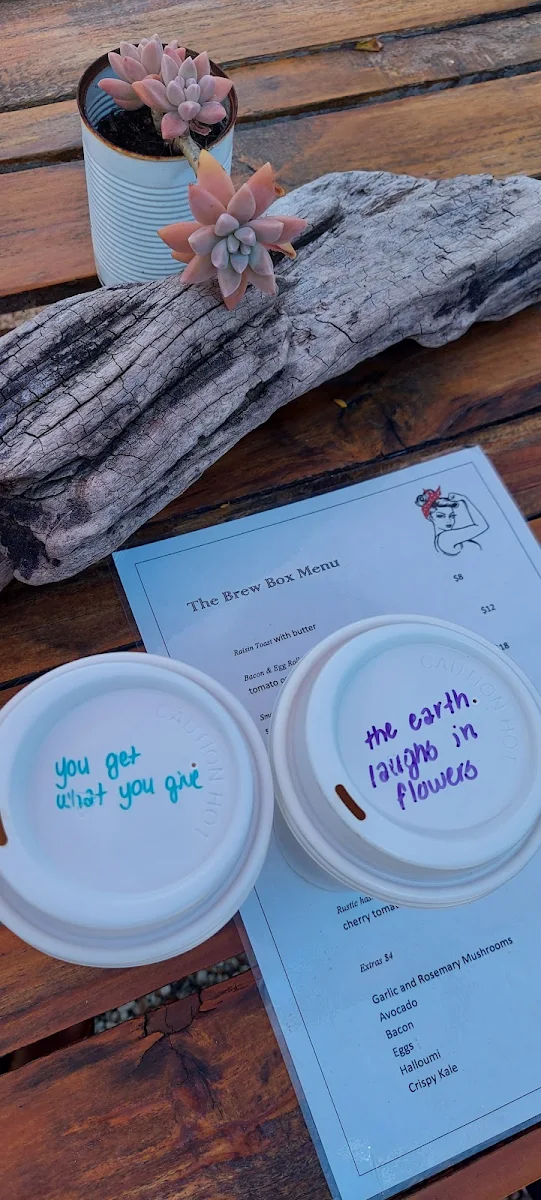 The Brew Box Menu
$8
Raisin Toast with butter
$12
Bacon & Egg
tomato
18
CAUTION HOT
you get
what you give
CAUTION HOT
the earth.
laughs in
flowers
Rustic
cherry
Extras $4
Garlic and Rosemary Mushrooms
Avocado
Bacon
Eggs
Halloumi
Crispy Kale